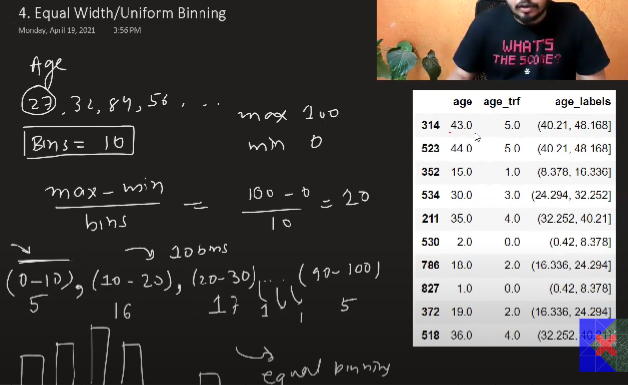 4. Equal Width/Uniform Binning
Monday, April 19, 2021 3:56 PM
Age
27, 32, 84, 56, ...
Bins = 10
max 100
min 0
max - min / bins = 100 - 0 / 10 = 20
→ 10 bins
(0-10), (10-20), (20-30) ... (90-100)
5 16 17 1 1 5
→ equal binning
WHAT'S
THE SCORE?
age age_trf age_labels
314 43.0 5.0 (40.21, 48.168]
523 44.0 5.0 (40.21, 48.168]
352 15.0 1.0 (8.378, 16.336]
534 30.0 3.0 (24.294, 32.252]
211 35.0 4.0 (32.252, 40.21]
530 2.0 0.0 (0.42, 8.378]
786 18.0 2.0 (16.336, 24.294]
827 1.0 0.0 (0.42, 8.378]
372 19.0 2.0 (16.336, 24.294]
518 36.0 4.0 (32.252, 40.21]